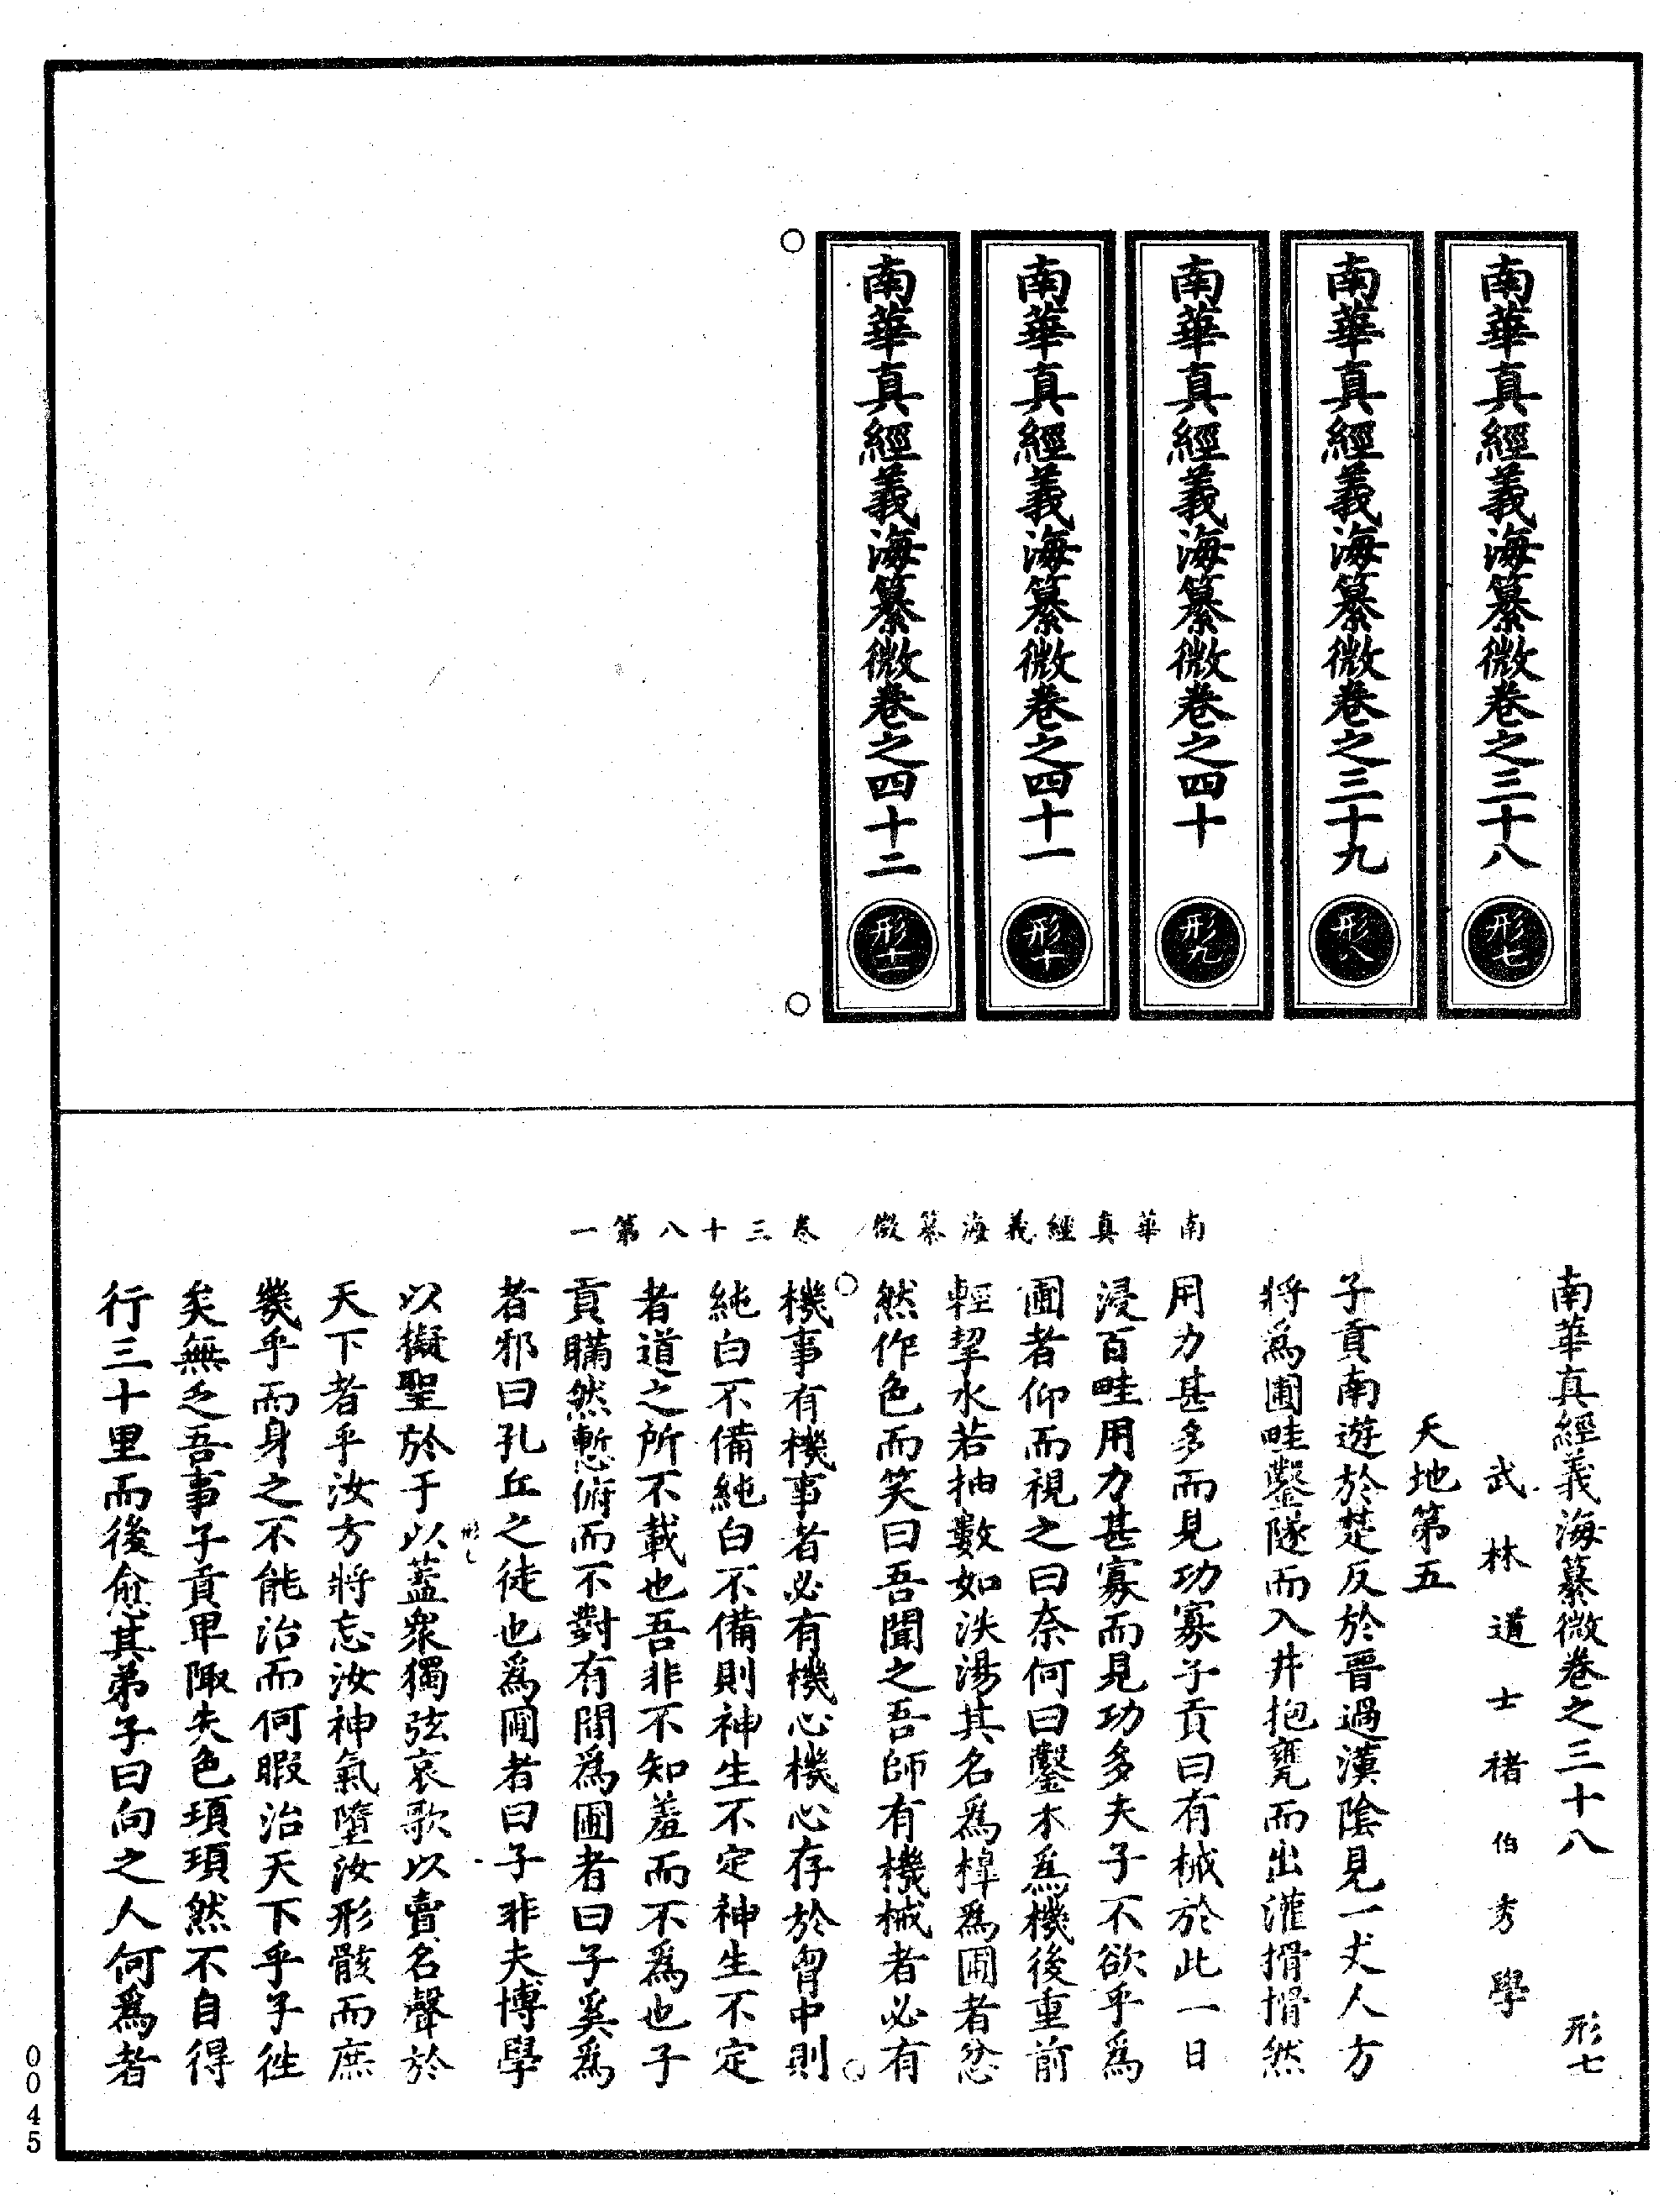 南華真經義海纂微卷之三十八
形七
南華真經義海纂微卷之三十九
形八
南華真經義海纂微卷之四十
形九
南華真經義海纂微卷之四十一
形十
南華真經義海纂微卷之四十二
形十一
南華真經義海纂微　卷三十八第一
南華真經義海纂微卷之三十八　形七
武林道士褚伯秀學
天地第五
子貢南遊於楚反於晉過漢陰見一丈人方
將爲圃畦鑿隧而入井抱甕而出灌搰搰然
用力甚多而見功寡子貢曰有械於此一日
浸百畦用力甚寡而見功多夫子不欲乎爲
圃者仰而視之曰奈何曰鑿木爲機後重前
輕挈水若抽數如泆湯其名爲槹爲圃者忿
然作色而笑曰吾聞之吾師有機械者必有
機事有機事者必有機心機心存於胷中則
純白不備純白不備則神生不定神生不定
者道之所不載也吾非不知羞而不爲也子
貢瞞然慙俯而不對有間爲圃者曰子奚爲
者邪曰孔丘之徒也爲圃者曰子非夫博學
以擬聖於于以蓋衆獨弦哀歌以賣名聲於
天下者乎汝方將忘汝神氣墮汝形骸而庶
幾乎而身之不能治而何暇治天下乎子徃
矣無乏吾事子貢卑陬失色頊頊然不自得
行三十里而後愈其弟子曰向之人何爲者
0045